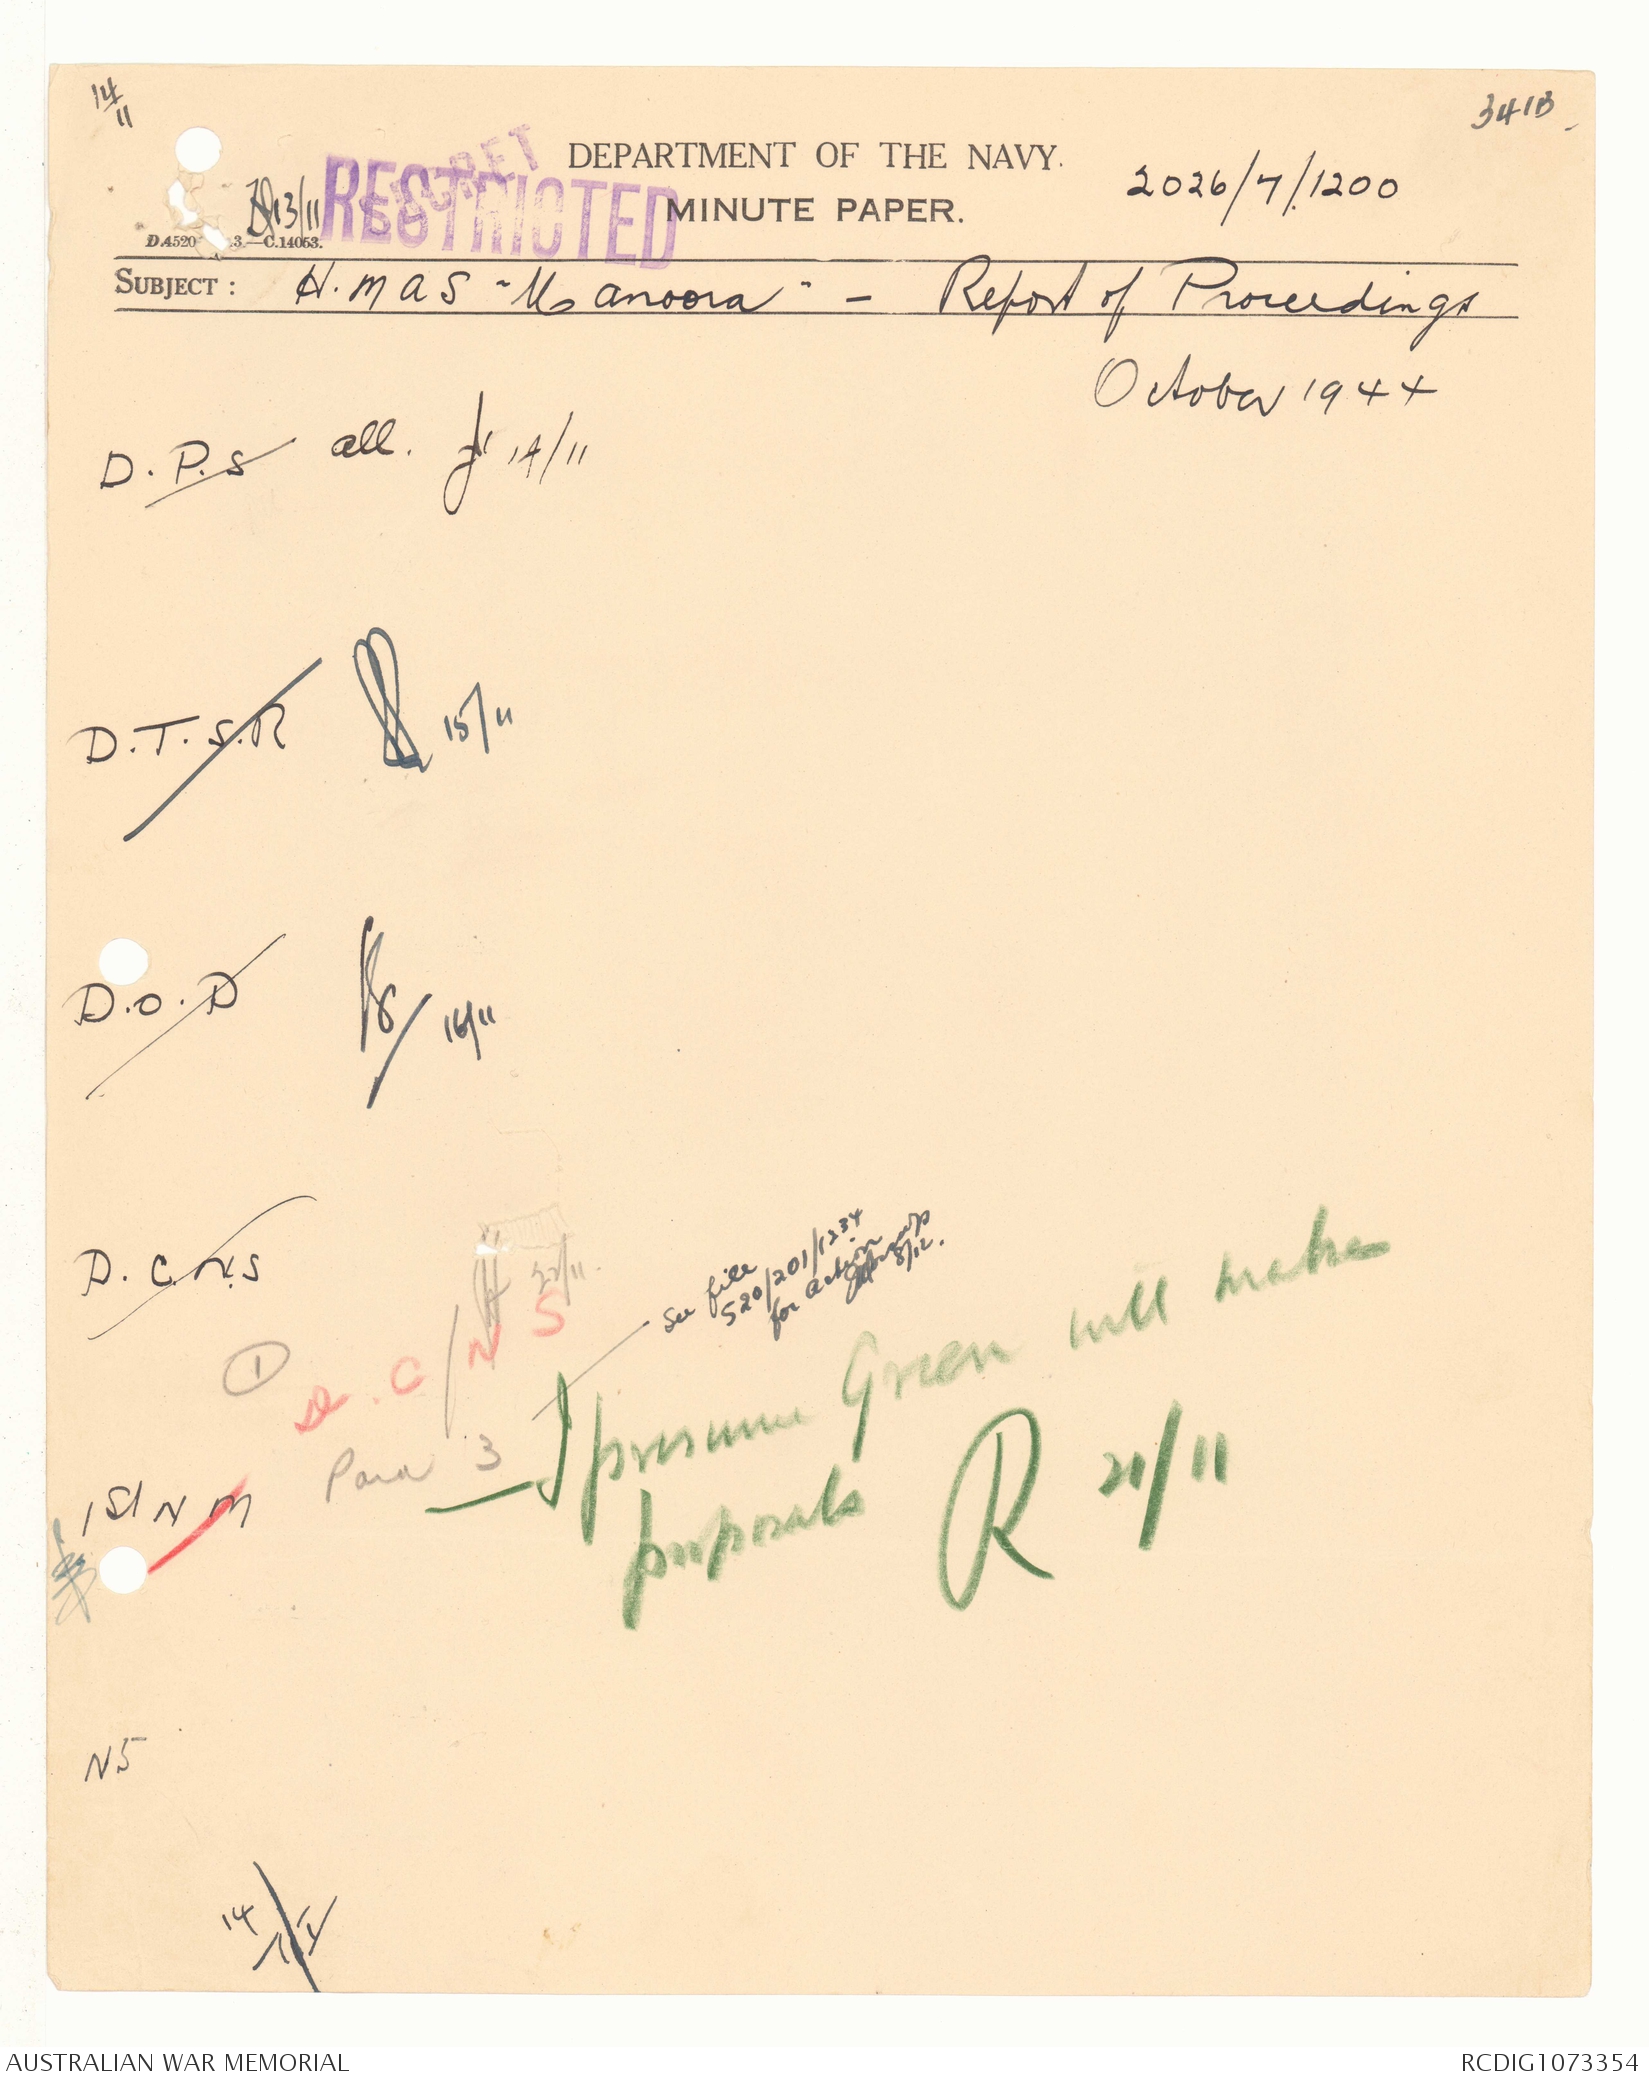 14/11
341B
SECRET
RESTRICTED
DEPARTMENT OF THE NAVY.
MINUTE PAPER.
2026/7/1200
13/11
D.4520 3.—C.14053.
SUBJECT : H.M A S "Manoora" - Report of Proceedings
October 1944
D.P.S all. 14/11
D.T.S.R 15/11
D.O.D 16/11
D.C.N.S 22/11.
See file
520/201/1234
for action
8/12.
1
D.C/NS
Para 3
I presume Green will make
proposals R 21/11
1st N M
N5
14
AUSTRALIAN WAR MEMORIAL
RCDIG1073354